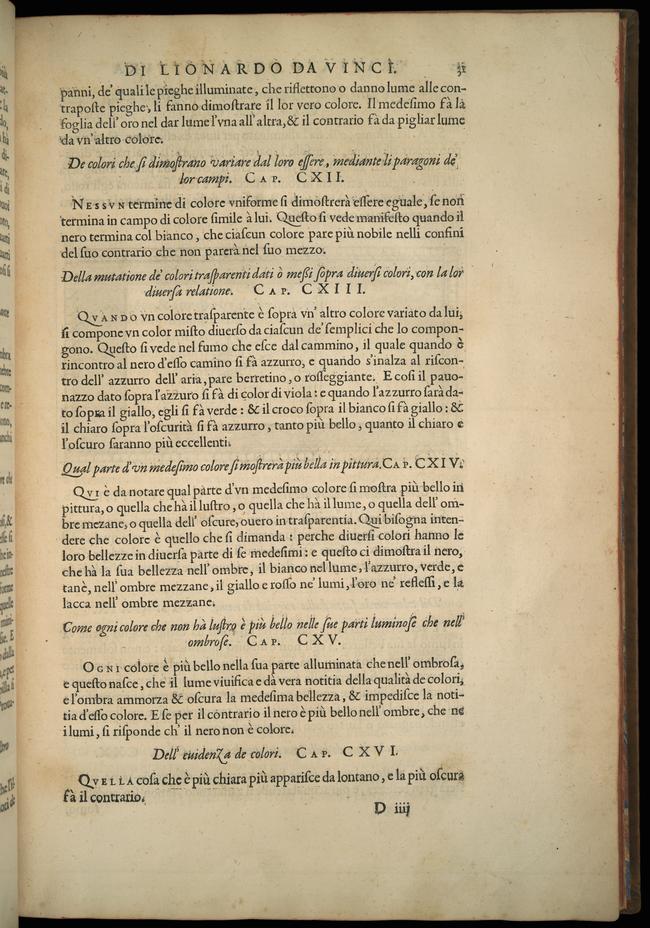 DI LIONARDO DA VINCI. 31
panni, de' quali le pieghe illuminate, che riflettono o danno lume alle con-
traposte pieghe, li fanno dimostrare il lor vero colore. Il medesimo fà la
foglia dell'oro nel dar lume l'vna all'altra, & il contrario fà da pigliar lume
da vn'altro colore.
De colori che si dimostrano variare dal loro essere, mediante li paragoni de'
lor campi. CAP. CXII.
NESSVN termine di colore vniforme si dimostrerà essere eguale, se non
termina in campo di colore simile à lui. Questo si vede manifesto quando il
nero termina col bianco, che ciascun colore pare più nobile nelli confini
del suo contrario che non parerà nel suo mezzo.
Della mutatione de' colori trasparenti dati ò messi sopra diuersi colori, con la lor
diuersa relatione. CAP. CXIII.
QVANDO vn colore trasparente è sopra vn' altro colore variato da lui,
si compone vn color misto diuerso da ciascun de' semplici che lo compon-
gono. Questo si vede nel fumo che esce dal cammino, il quale quando è
rincontro al nero d'esso camino si fà azzurro, e quando s'inalza al riscon-
tro dell' azzurro dell' aria, pare berretino, o rosseggiante. E così il pauo-
nazzo dato sopra l'azzuro si fà di color di viola: e quando l'azzurro sarà da-
to sopra il giallo, egli si fà verde: & il croco sopra il bianco si fà giallo: &
il chiaro sopra l'oscurità si fà azzurro, tanto più bello, quanto il chiaro e
l'oscuro saranno più eccellenti.
Qual parte d'vn medesimo colore si mostrerà più bella in pittura. CAP. CXIV.
QVI è da notare qual parte d'vn medesimo colore si mostra più bello in
pittura, o quella che hà il lustro, o quella che hà il lume, o quella dell' om-
bre mezane, o quella dell' oscure, ouero in trasparentia. Qui bisogna inten-
dere che colore è quello che si dimanda: perche diuersi colori hanno le
loro bellezze in diuersa parte di se medesimi: e questo ci dimostra il nero,
che hà la sua bellezza nell' ombre, il bianco nel lume, l'azzurro, verde, e
tanè, nell' ombre mezzane, il giallo e rosso ne' lumi, l'oro ne' reflessi, e la
lacca nell' ombre mezzane.
Come ogni colore che non hà lustro è più bello nelle sue parti luminose che nell'
ombrose. CAP. CXV.
OGNI colore è più bello nella sua parte alluminata che nell' ombrosa,
e questo nasce, che il lume viuifica e dà vera notitia della qualità de colori,
e l'ombra ammorza & oscura la medesima bellezza, & impedisce la noti-
tia d'esso colore. E se per il contrario il nero è più bello nell' ombre, che ne
i lumi, si risponde ch' il nero non è colore.
Dell' euidenza de colori. CAP. CXVI.
QVELLA cosa che è più chiara più apparisce da lontano, e la più oscura
fà il contrario.
D iiij